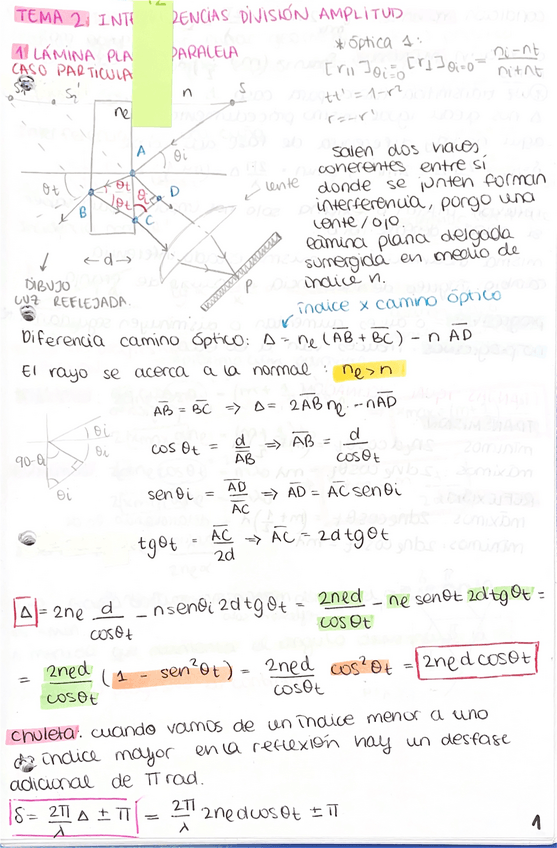 TEMA 2: INT RENCIAS DIVISIÓN AMPLITUD
1) LÁMINA PLA PARALELA
CASO PARTICULA
* óptica 1:
[r11]θi=0 = [r⊥]θi=0 = ni-nt / ni+nt
tt' = 1-r²
r = -r'
S1' n n S
ne
A
θi
θt θt θi D
B θt C
lente
d
P
DIBUJO
LUZ REFLEJADA.
salen dos haces
coherentes entre sí
donde se junten forman
interferencia, porgo una
lente/ojo.
Lámina plana delgada
sumergida en medio de
índice n.
índice x camino óptico
Diferencia camino óptico: Δ = ne (AB + BC) - n AD
El rayo se acerca a la normal: ne > n
AB = BC => Δ = 2AB ne - nAD
cos θt = d/AB => AB = d/cosθt
sen θi AD/AC => AD = AC sen θi
tgθt = AC/2d => AC = 2d tgθt
θi
90-θi θi
θi
Δ = 2ne d/cosθt - n senθi 2d tgθt = 2ned/cosθt - ne senθt 2d tgθt =
= 2ned/cosθt (1 - sen²θt) = 2ned/cosθt cos²θt = 2ned cosθt
chuleta: cuando vamos de un índice menor a uno
índice mayor en la reflexión hay un desfase
adicional de π rad.
δ = 2π/λ Δ ± π = 2π/λ 2ned cosθt ± π
1